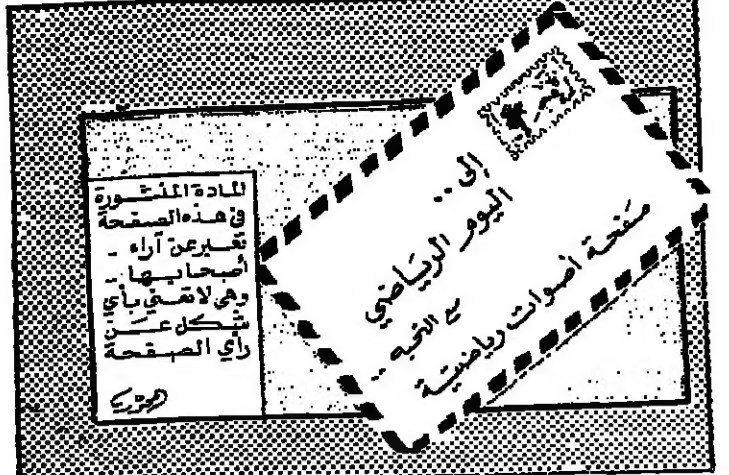 المادة المنشورة
في هذه الصفحة
تعبر عن آراء
أصحابها
وهي لا تعني بأي
شكل عن
رأي الصفحة
المحرر
إلى ..
اليوم الرياضي
مع التحية ..
صفحة أصوات رياضية